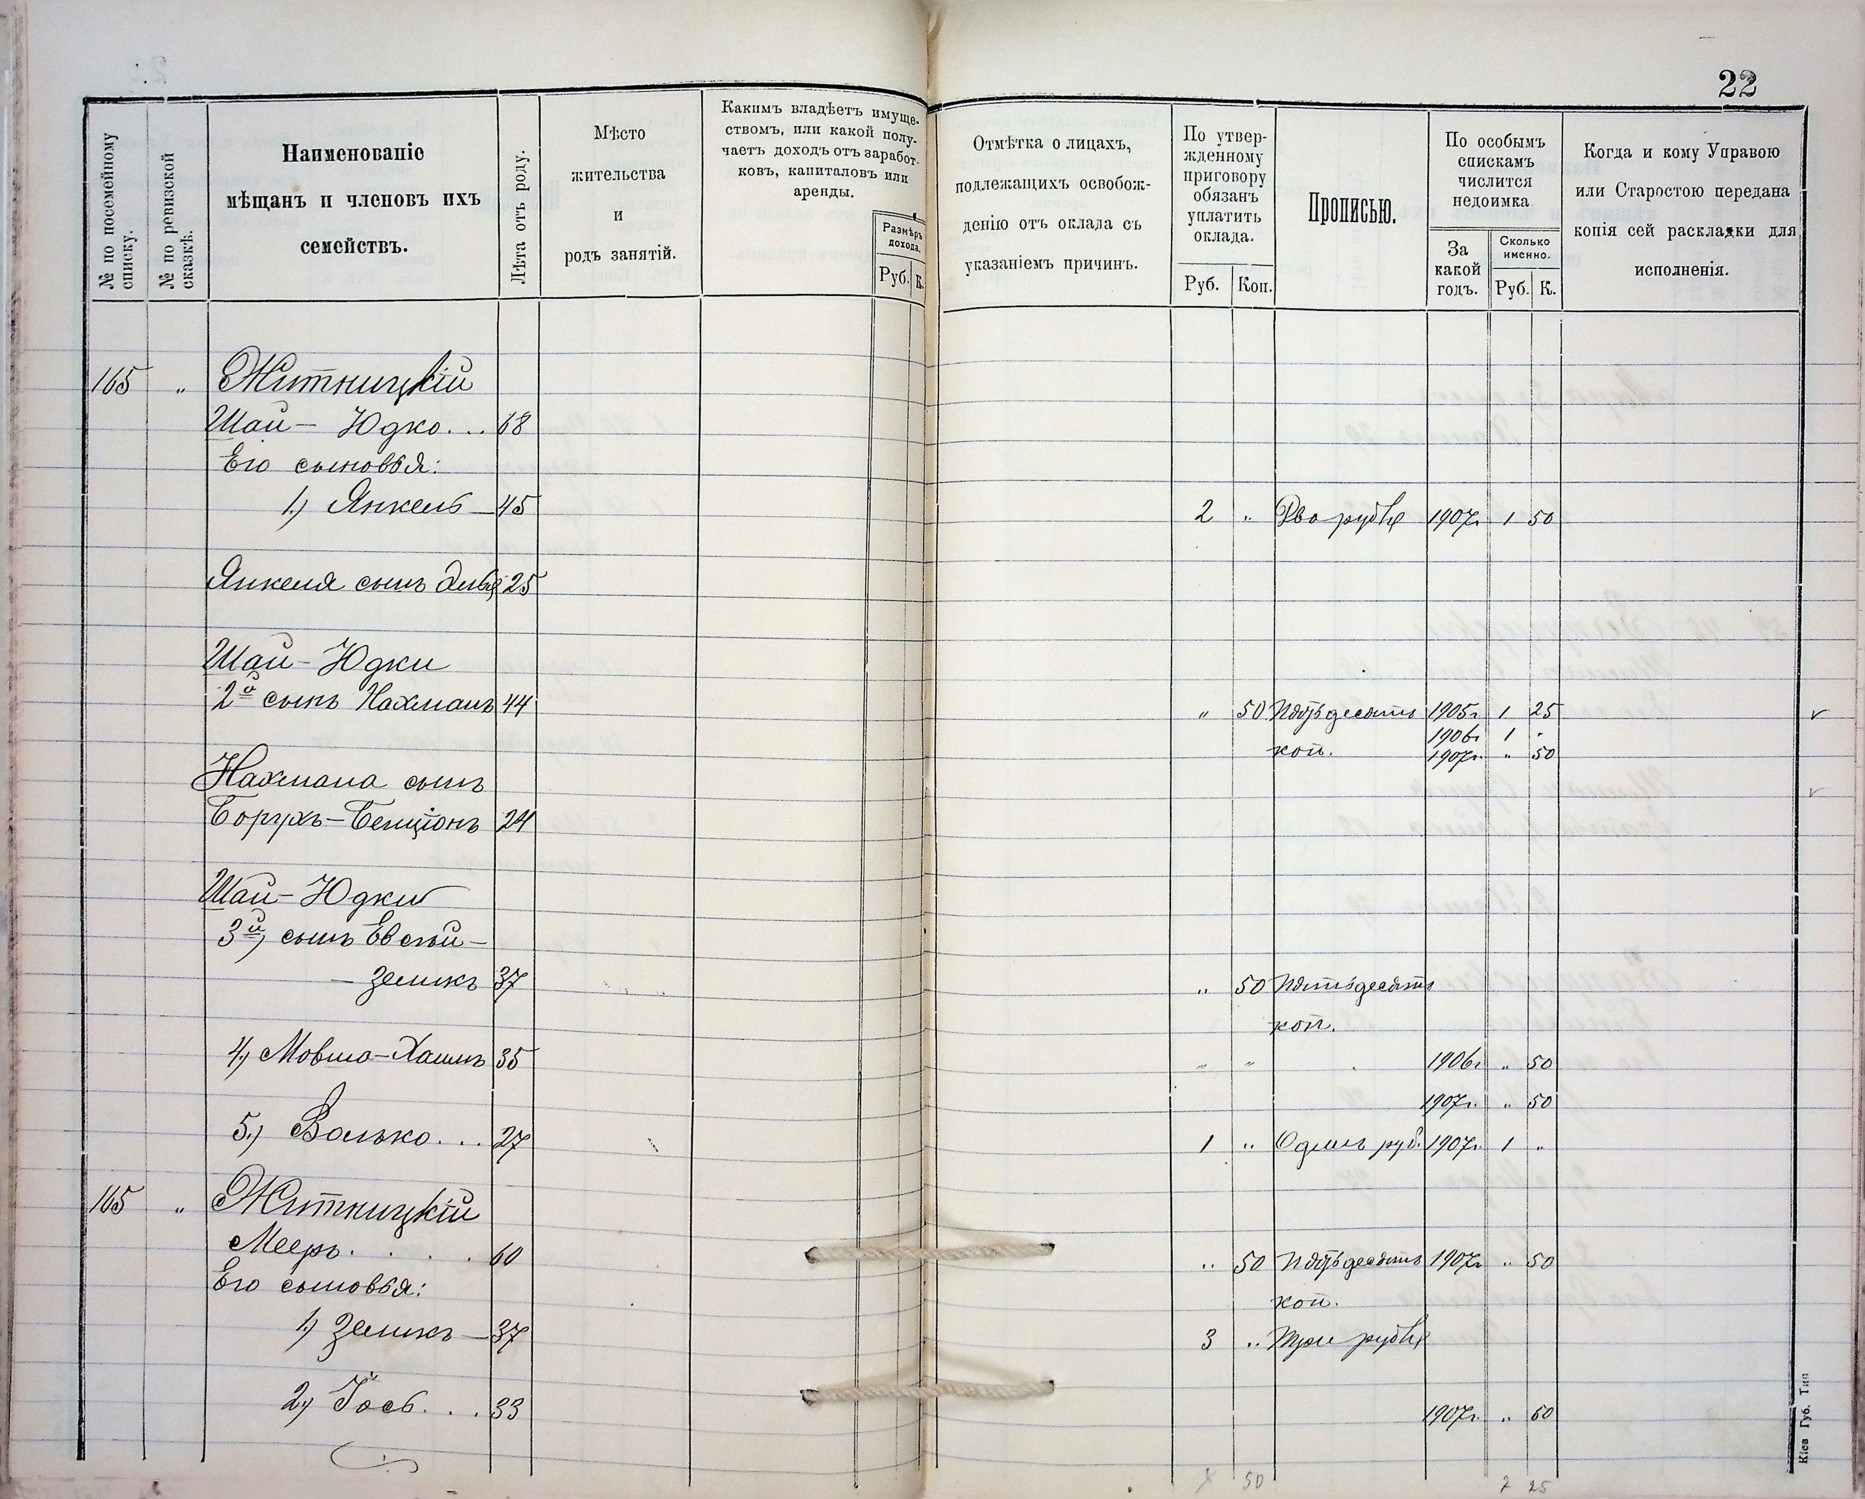 22
№ по посемейному списку.
№ по ревизской сказкѣ.
Наименованіе
мѣщанъ и членовъ ихъ
семействъ.
Лѣта отъ роду.
Мѣсто
жительства
и
родъ занятій.
Какимъ владѣетъ имуще-
ствомъ, или какой полу-
чаетъ доходъ отъ заработ-
ковъ, капиталовъ или
аренды.
Размѣръ
дохода.
Руб. К.
Отмѣтка о лицахъ,
подлежащихъ освобож-
денію отъ оклада съ
указаніемъ причинъ.
По утвер-
жденному
приговору
обязанъ
уплатить
оклада.
Руб. Коп.
Прописью.
По особымъ
спискамъ
числится
недоимка
За
какой
годъ.
Сколько
именно.
Руб. К.
Когда и кому Управою
или Старостою передана
копія сей раскладки для
исполненія.
165 „ Житницкій
Шаи- Юдко... 68
Его сыновья:
1.) Янкель - 45 2 „ Два рубля 1907г. 1 50
Янкеля сынъ 25
Шаи-Юдки
2й сынъ Нахманъ 44 „ 50 Пятьдесятъ 1905г. 1 25
1906г. 1 „
коп. 1907г. „ 50
Нахмана сынъ
Борухъ-Бенціонъ 24
Шаи-Юдки
3й) сынъ Евсѣй-
- Зеликъ 37 „ 50 Пятьдесятъ
коп.
4.) Мовша-Хаимъ 35 „ „ 1906г. „ 50
1907г. „ 50
5.) Волько... 27 1 „ Одинъ руб. 1907г. 1 „
165 „ Житницкій
Мееръ. . . . 60 „ 50 Пятьдесятъ 1907г. „ 50
Его сыновья: коп.
1.) Зеликъ - 37 3 „ Три рубля
2.) Іось. . . 33 1907г. „ 50
50 7 25
Кіев Губ. Тип